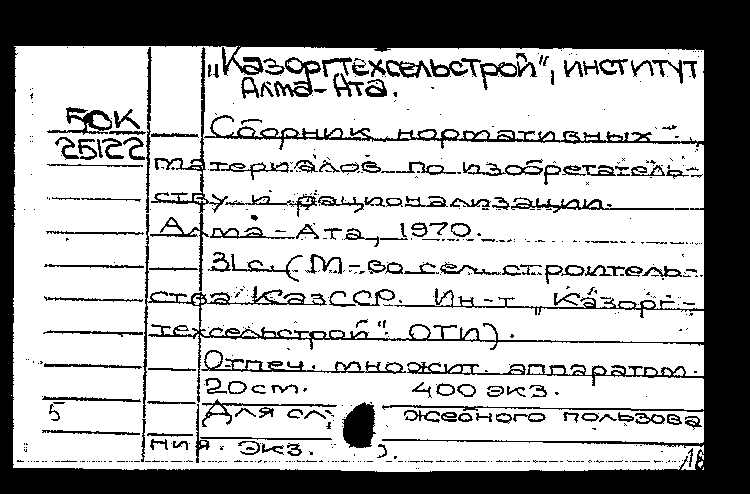 „Казоргтехсельстрой", институт
Алма-Ата.
БОК
25122
Сборник нормативных
материалов по изобретатель-
ству и рационализации.
Алма-Ата, 1970.
31 с. (М-во сел. строитель-
ства КазССР. Ин-т „Казорг-
техсельстрой". ОТИ).
Отпеч. множит. аппаратом.
20 см. 400 экз.
5 Для сл жебного пользова
ния. Экз. ).
18